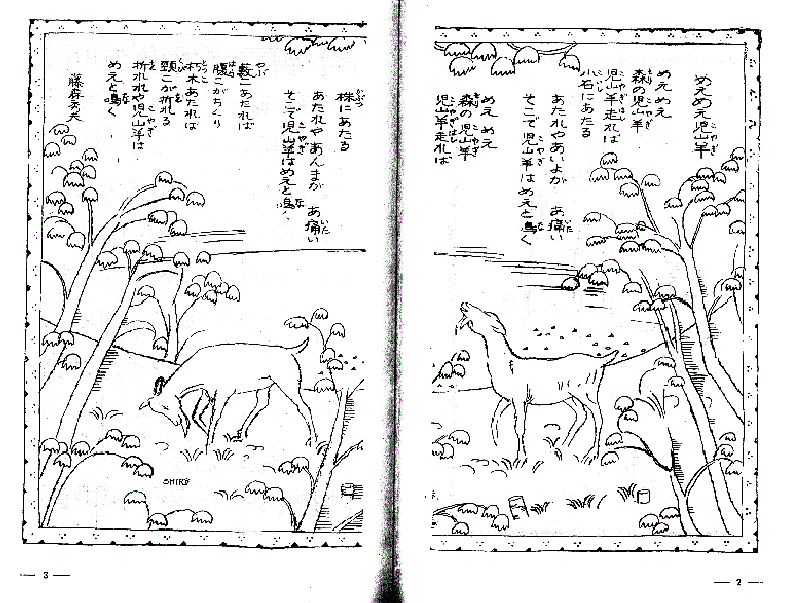 めえめえ児山羊
めえめえ
森の児山羊
児山羊走れば
小石にあたる
あたれやあいよが あ痛い
そこで児山羊はめえと鳴く
めえ めえ
森の児山羊
児山羊走れば
株にあたる
あたれやあんまが あ痛い
そこで児山羊はめえと鳴く
藪こあたれば
腹こがちくり
朽木あたれば
頸こが折れる
折れれや児山羊は
めえと鳴く
藤森秀夫
SHIRŌ
— 2 —
— 3 —